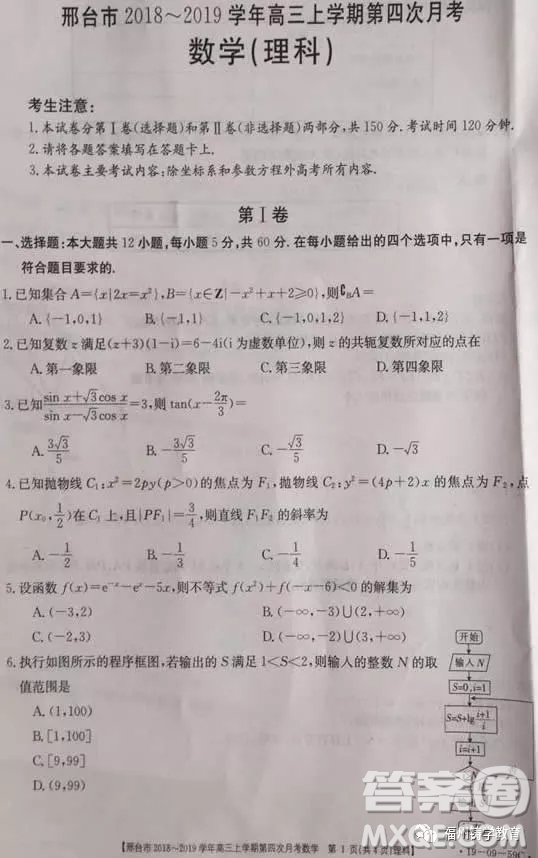 邢台市 2018～2019 学年高三上学期第四次月考
数学(理科)
考生注意:
1.本试卷分第Ⅰ卷(选择题)和第Ⅱ卷(非选择题)两部分,共 150 分.考试时间 120 分钟.
2.请将各题答案填写在答题卡上.
3.本试卷主要考试内容:除坐标系和参数方程外高考所有内容.
第Ⅰ卷
一、选择题:本大题共 12 小题,每小题 5 分,共 60 分.在每小题给出的四个选项中,只有一项是
符合题目要求的.
1.已知集合 A={x|2x=x²},B={x∈Z|-x²+x+2≥0},则∁BA=
A.{-1,0,1} B.{-1,1} C.{-1,0,2} D.{-1,1,2}
2.已知复数 z 满足(z+3)(1-i)=6-4i(i 为虚数单位),则 z 的共轭复数所对应的点在
A.第一象限 B.第二象限 C.第三象限 D.第四象限
3.已知(sin x+√3cos x)/(sin x-√3cos x)=3,则 tan(x-2π/3)=
A.3√3/5 B.-3√3/5 C.-√3/5 D.-√3
4.已知抛物线 C₁:x²=2py(p>0)的焦点为 F₁,抛物线 C₂:y²=(4p+2)x 的焦点为 F₂,点
P(x₀,1/2)在 C₁ 上,且|PF₁|=3/4,则直线 F₁F₂ 的斜率为
A.-1/2 B.-1/3 C.-1/4 D.-1/5
5.设函数 f(x)=e⁻ˣ-eˣ-5x,则不等式 f(x²)+f(-x-6)<0 的解集为
A.(-3,2) B.(-∞,-3)∪(2,+∞)
C.(-2,3) D.(-∞,-2)∪(3,+∞)
6.执行如图所示的程序框图,若输出的 S 满足 1<S<2,则输入的整数 N 的取
值范围是
A.(1,100)
B.[1,100]
C.[9,99]
D.(9,99)
开始
输入 N
S=0,i=1
S=S+lg (i+1)/i
i=i+1
【邢台市 2018～2019 学年高三上学期第四次月考数学 第 1 页(共 4 页)理科】
·19-09-59C·
答案圈
福州莠字教育